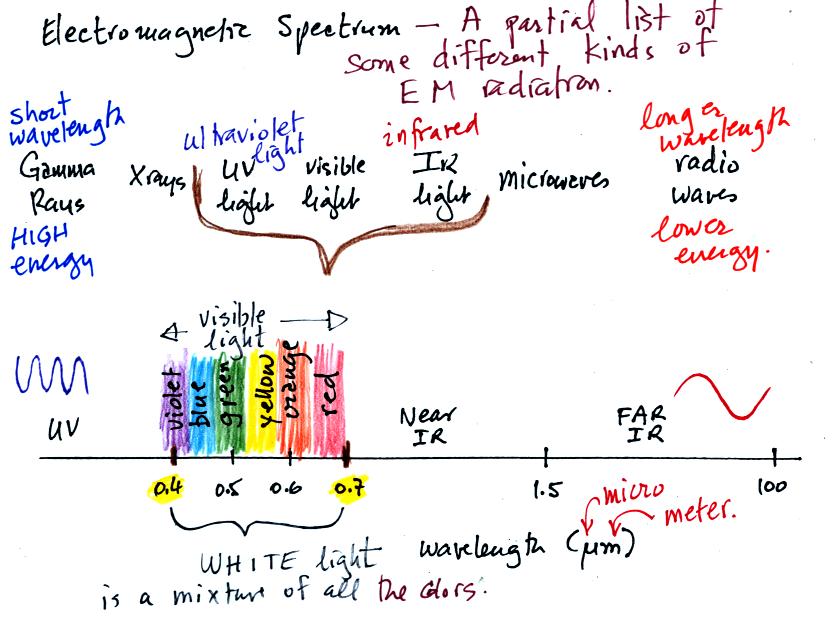 Electromagnetic Spectrum — A partial list of
some different kinds of
EM radiation.
short
wavelength
Gamma
Rays
HIGH
energy
X rays
ultraviolet
light
UV
light
visible
light
infrared
IR
light
microwaves
longer
wavelength
radio
waves
lower
energy.
visible
light
violet
blue
green
yellow
orange
red
UV
Near
IR
FAR
IR
0.4 0.5 0.6 0.7 1.5 100
micro
meter.
wavelength (μm)
WHITE light
is a mixture of all the colors.